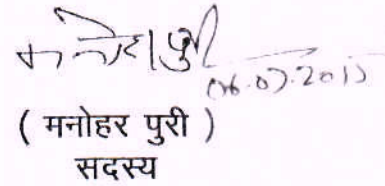 मनोहर पुरी
06.07.2015
( मनोहर पुरी )
सदस्य